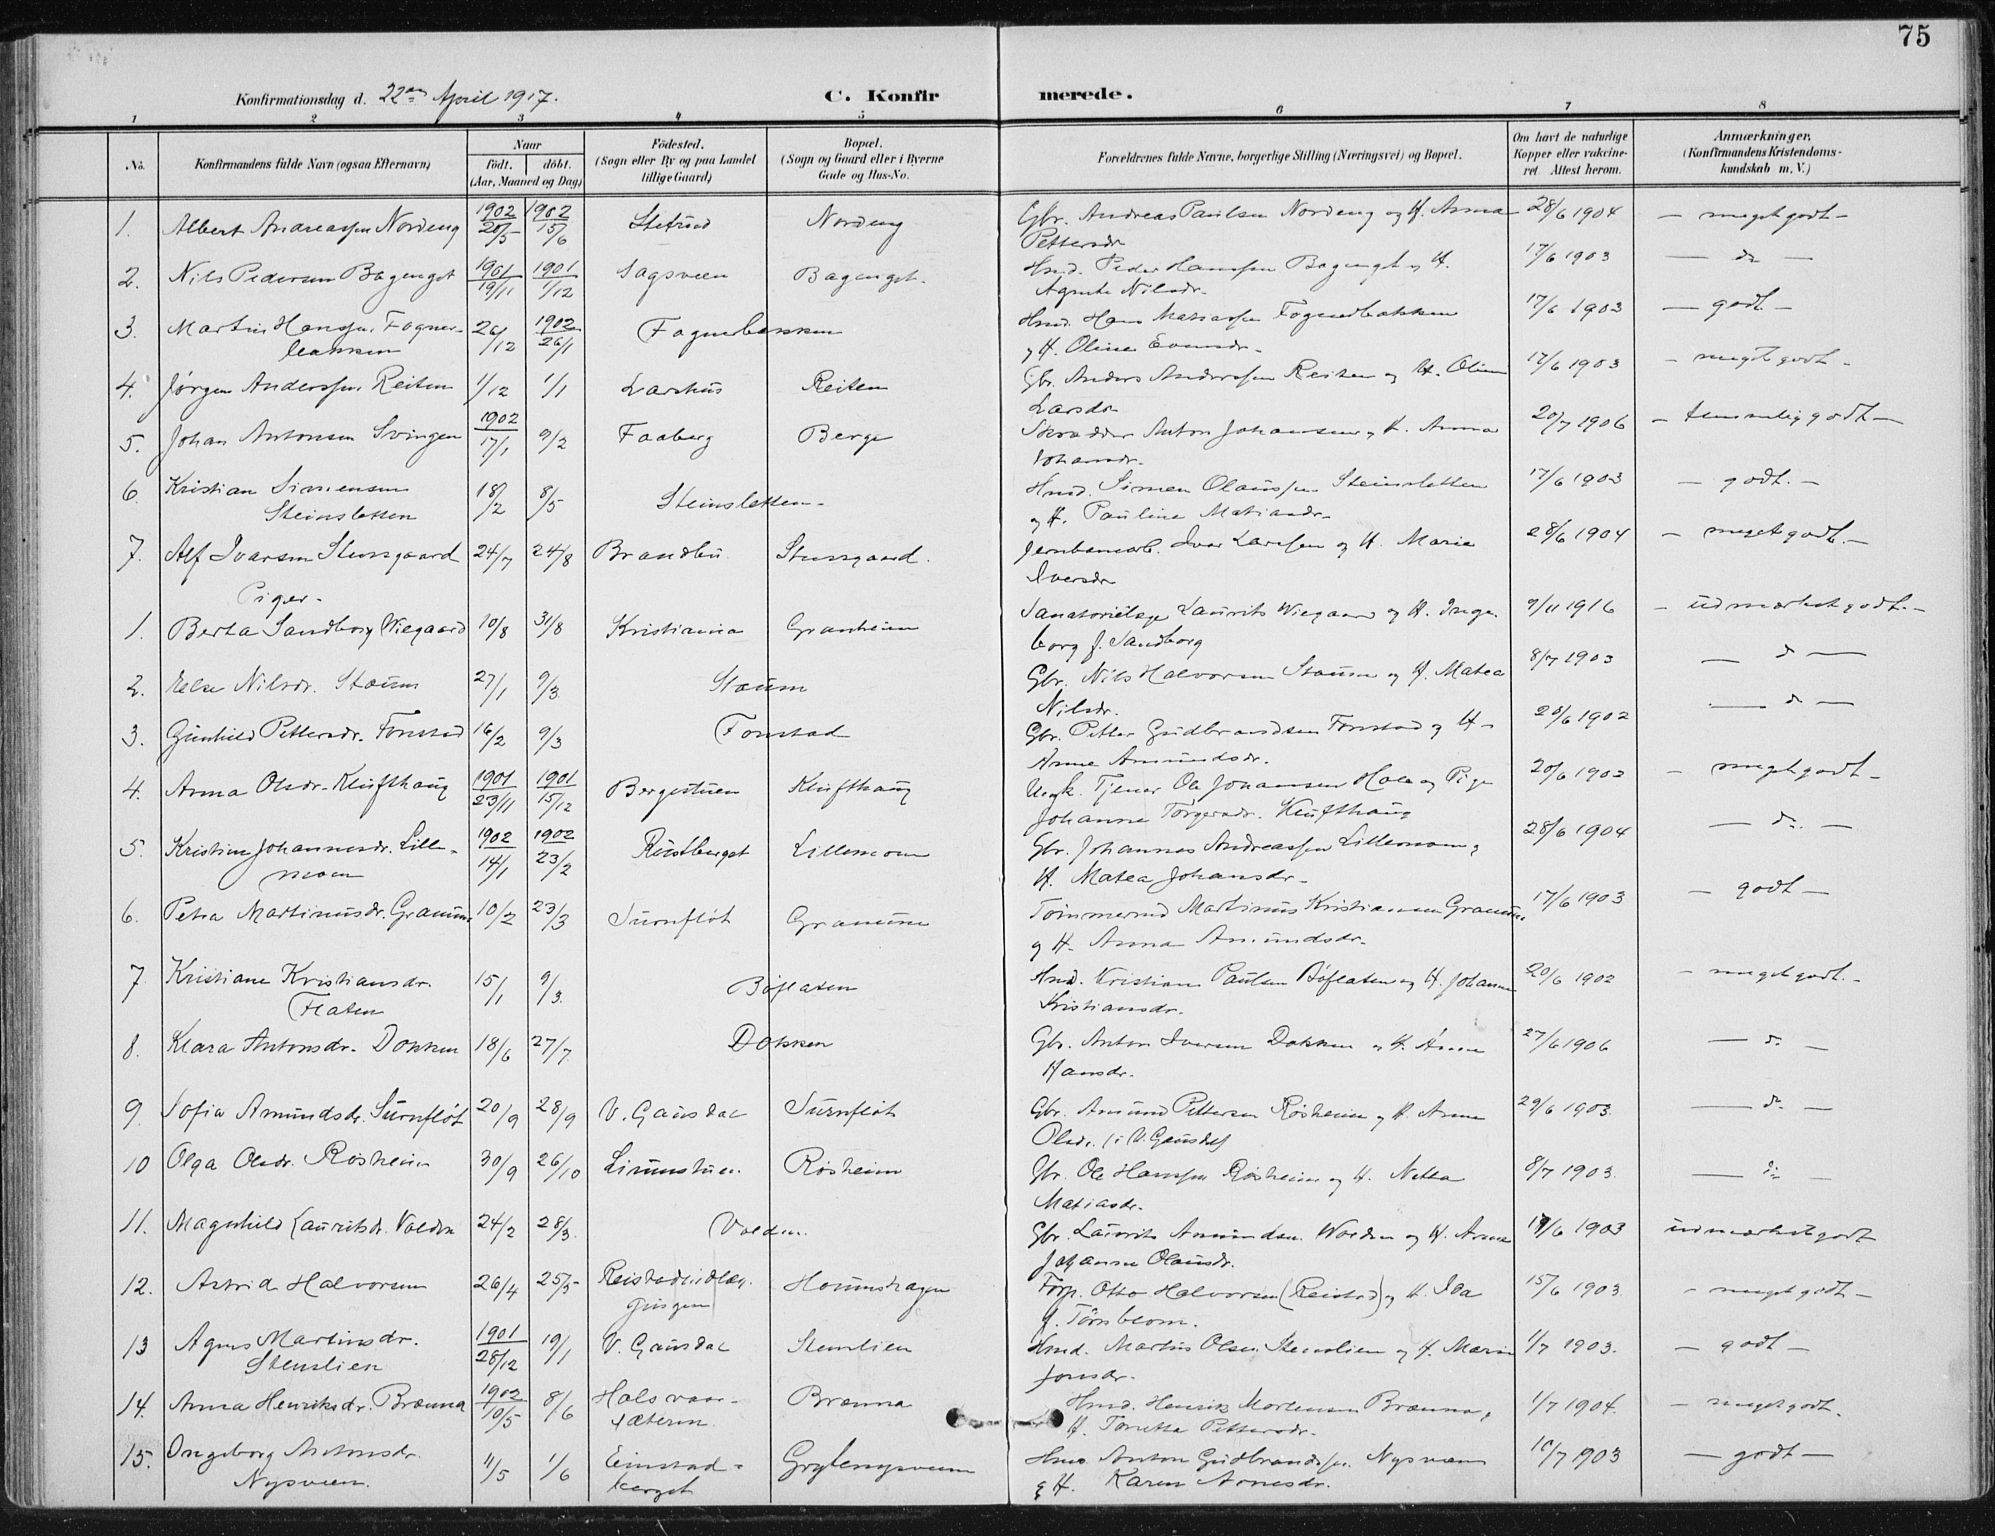 75
Konfirmationsdag d. 22de April 1917.
C. Konfirmerede.
1 2 3 4 5 6 7 8
No. Konfirmandens fulde Navn (ogsaa Efternavn) Naar født. døbt. (Aar, Maaned og Dag) Fødested. (Sogn eller By og paa Landet tillige Gaard) Bopæl. (Sogn og Gaard eller i Byerne Gade og Hus-No. Forældrenes fulde Navne, borgerlige Stilling (Næringsvei) og Bopæl. Om havt de naturlige Kopper eller vakcineret Attest herom. Anmærkninger. (Konfirmandens Kristendomskundskab m. V.)
1. Albert Andreassen Nordeng 1902 20/5 1902 15/6 Nordeng Gbr. Andreas Paulsen Nordeng og H. Anna 28/6 1904 - meget godt -
Pettersdr.
2. Nils Pedersen Bagenget 1901 19/11 1901 1/12 Sagsveen Bagenget. Hmd. Peder Hanssen Bagenget og H. 17/6 1903 - do -
Agnete Nilsdr.
3. Martin Hanssen Fagner- 26/12 1902 26/1 Fagnerbakken Hmd. Hans 17/6 1903 - godt -
bakken og H. Oline Evensdr.
4. Jørgen Anderssen Reiten 1/12 1/1 Larshus Reiten Gbr. Anders Anderssen Reiten og H. Oline 17/6 1903 - meget godt -
Larsdr.
5. Johan Antonsen Svingen 1902 17/1 9/2 Faaberg Berge Skrædder Anton Johansen og H. Anna 20/7 1906 - temmelig godt -
Johansdr.
6. Kristian Simensen 18/2 8/5 Steinsletten. Hmd. Simen Olaussen Steinsletten 17/6 1903 - godt. -
Steinsletten og H. Pauline Matiasdr.
7. Alf Ivarsen Stensgaard 24/7 24/8 Brandbu Stensgaard. Jernbanearb. Ivar Larssen og H. Marie 28/6 1904 - meget godt. -
Iversdr.
Piger.
1. Berta Sandborg Wiegaard 10/8 31/8 Kristiania Granheim Sanatorielæge Laurits Wiegaard og H. Inge- 9/11 1916 - udmærket godt. -
borg f. Sandborg
2. Else Nilsdr. Staum 27/1 9/3 Staum Gbr. Nils Halvorsen Staum og H. Matea 8/7 1903 - do -
Nilsdr.
3. Gunhild Pettersdr. Fonstad 16/2 9/3 Fonstad Gbr. Petter Gudbrandsen Fonstad og H. 20/6 1902 - do -
Anne Amundsdr.
4. Anna Olsdr. Klufthaug 1901 23/11 1901 15/12 Bergestuen Klufthaug Ungk. Tjener Ole Johansen Hole og Pige 20/6 1902 - meget godt -
Johanne Torgersdr. Klufthaug
5. Kristine Johannesdr. Lille- 1902 14/1 1902 23/2 Rustberget Lillemoen Gbr. Johannes Andreassen Lillemoen og 28/6 1904 - do. -
moen H. Matea Johansdr.
6. Petra Martinusdr. Granum 10/2 23/3 Surnfløt Granum Tømmermd Martinus Kristiansen Granum 17/6 1903 - godt -
og H. Anna Amundsdr.
7 Kristiane Kristiansdr. 15/1 9/3. Bøflaten Hmd. Kristian Paulsen Bøflaten og H. Johanne 20/6 1902 - meget godt. -
Flaten Kristiansdr.
8. Klara Antonsdr. Dokken 18/6 27/7 Dokken Gbr. Anton Iversen Dokken og H. Anne 27/6 1906 - do. -
Hansdr.
9. Sofia Amundsdr. Surnfløt 20/9 28/9 V. Gausdal Surnfløt Gbr. Amund Pettersen Røsheim og H. Anne 29/6 1903. - do. -
Olsdr. (i V. Gausdal)
10 Olga Olsdr. Røsheim 30/9 26/10 Linnstuen. Røsheim Gbr. Ole Hanssen Røsheim og H. Netta 8/7 1903. - do. -
Matiasdr.
11. Magnhild Lauritsdr. Volden 24/2 28/3. Volden. Gbr. Laurits Amundsen Wolden og H. Anne 17/6 1903 udmærket godt
Johanne Olausdr.
12. Astrid Halvorsen 26/4 25/5 Forp. Otto Halvorsen (Reistad) og H. Ida 15/6 1903. - meget godt -
f. Törnblom.
13 Agnes Martinsdr. 1901 28/12 19/1 V. Gausdal Stenslien Hmd. Martin Olsen Stenslien og H. Marie 1/7 1903. - godt -
Stenslien Jonsdr.
14. Anna Henriksdr. Brænna 1902 10/5 8/6 Halsvaar- Brænna Hmd. Henrik Mortensen Brænna, 1/7 1904. - meget godt.
sæteren. H. Tonetta Pettersdr.
15. Ingeborg Antonsdr. 11/5 1/6 Einstad- Grytengsveen Hmd. Anton Gudbrandssen Nysveen 10/7 1903 - godt -
Nysveen. berget og H. Karen Arnesdr.